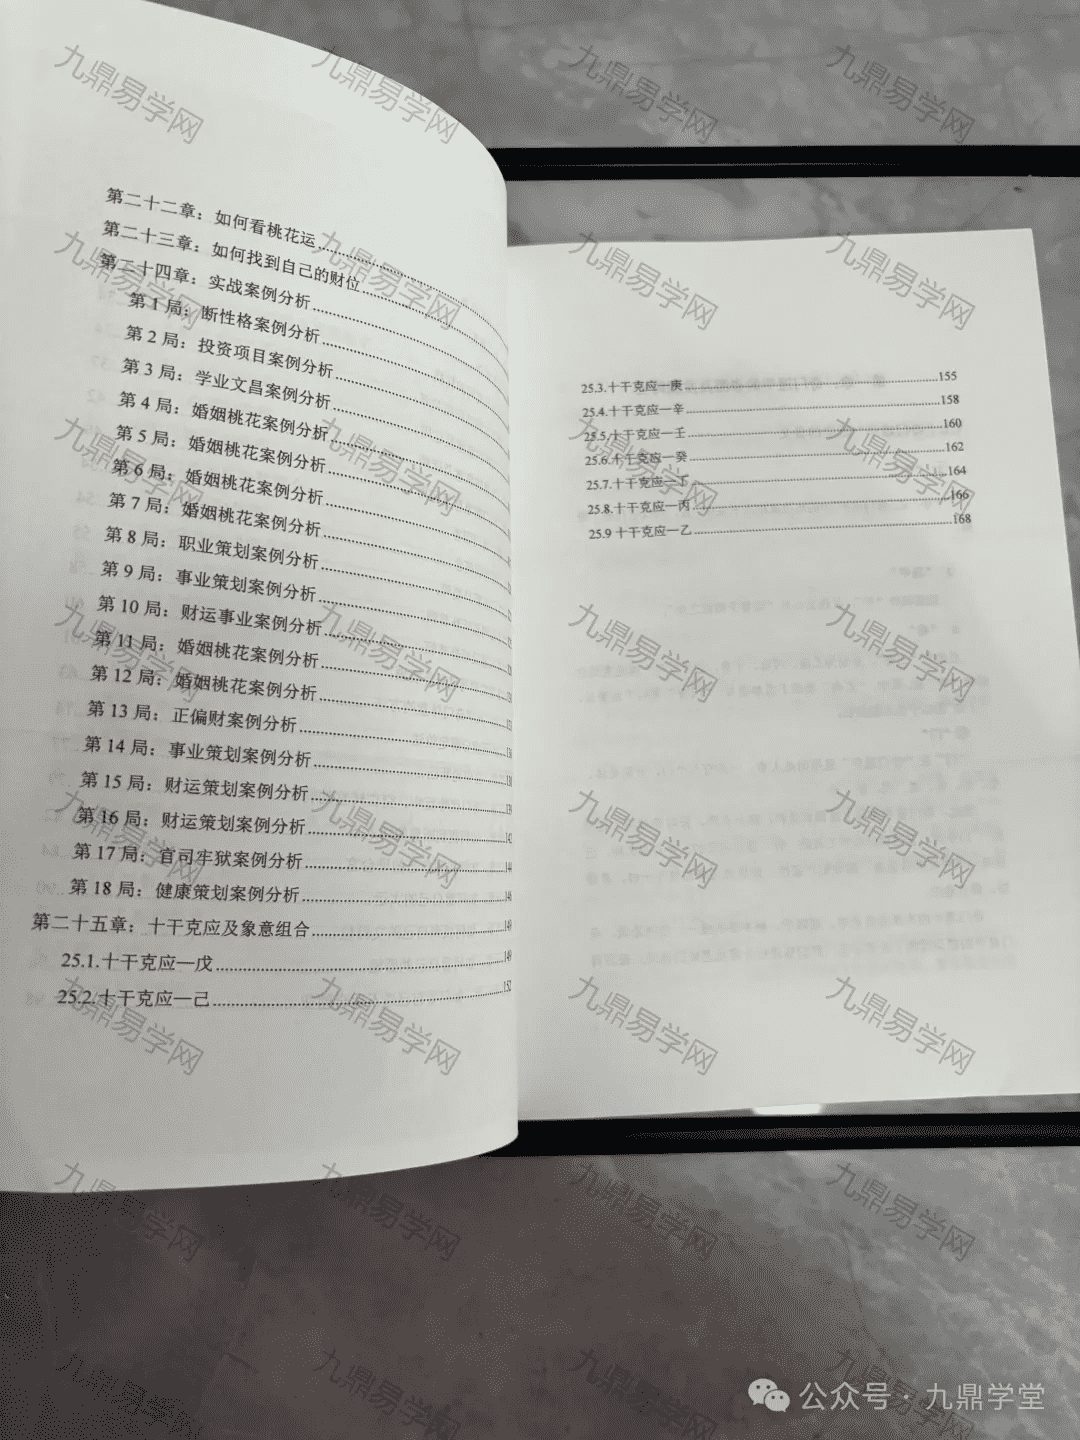 第二十二章：如何看桃花运
第二十三章：如何找到自己的财位
第二十四章：实战案例分析
第 1 局：断性格案例分析
第 2 局：投资项目案例分析
第 3 局：学业文昌案例分析
第 4 局：婚姻桃花案例分析
第 5 局：婚姻桃花案例分析
第 6 局：婚姻桃花案例分析
第 7 局：婚姻桃花案例分析
第 8 局：职业策划案例分析
第 9 局：事业策划案例分析
第 10 局：财运事业案例分析
第 11 局：婚姻桃花案例分析
第 12 局：婚姻桃花案例分析
第 13 局：正偏财案例分析
第 14 局：事业策划案例分析
第 15 局：财运策划案例分析
第 16 局：财运策划案例分析
第 17 局：官司牢狱案例分析
第 18 局：健康策划案例分析
第二十五章：十干克应及象意组合
25.1.十干克应—戊
25.2.十干克应—己
25.3.十干克应—庚 155
25.4.十干克应—辛 158
25.5.十干克应—壬 160
25.6.十干克应—癸 162
25.7.十干克应—丁 164
25.8.十干克应—丙 166
25.9 十干克应—乙 168
九鼎易学网
公众号 · 九鼎学堂